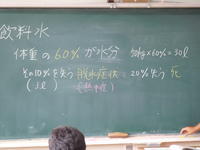 飲料水
体重の60%が水分 50kg×60%=30ℓ
その10%を失う 脱水症状 20%失う 死
(3ℓ) (熱中症)